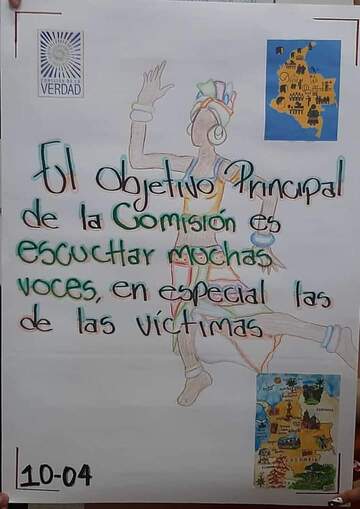 COMISIÓN DE LA
VERDAD
El Objetivo Principal
de la Comisión es
escuchar muchas
voces, en especial las
de las víctimas
COLOMBIA
10-04